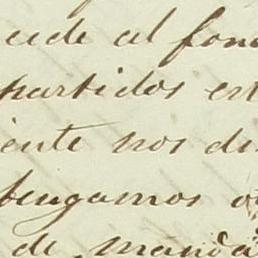 cede al fon
partidos est
iente nos di
bengamos o
de manda